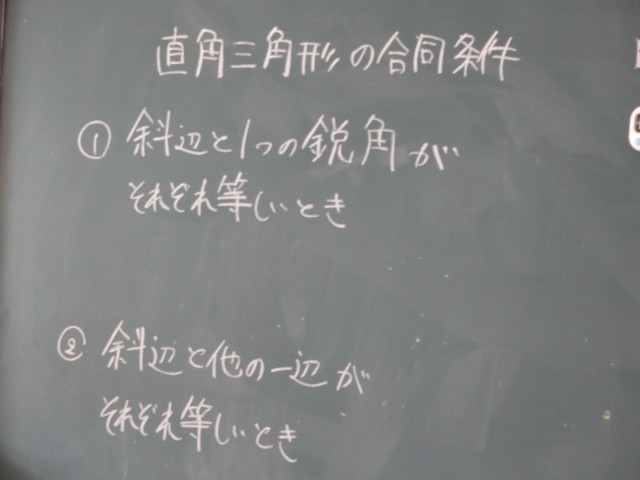 直角三角形の合同条件
① 斜辺と1つの鋭角が
それぞれ等しいとき
② 斜辺と他の一辺が
それぞれ等しいとき